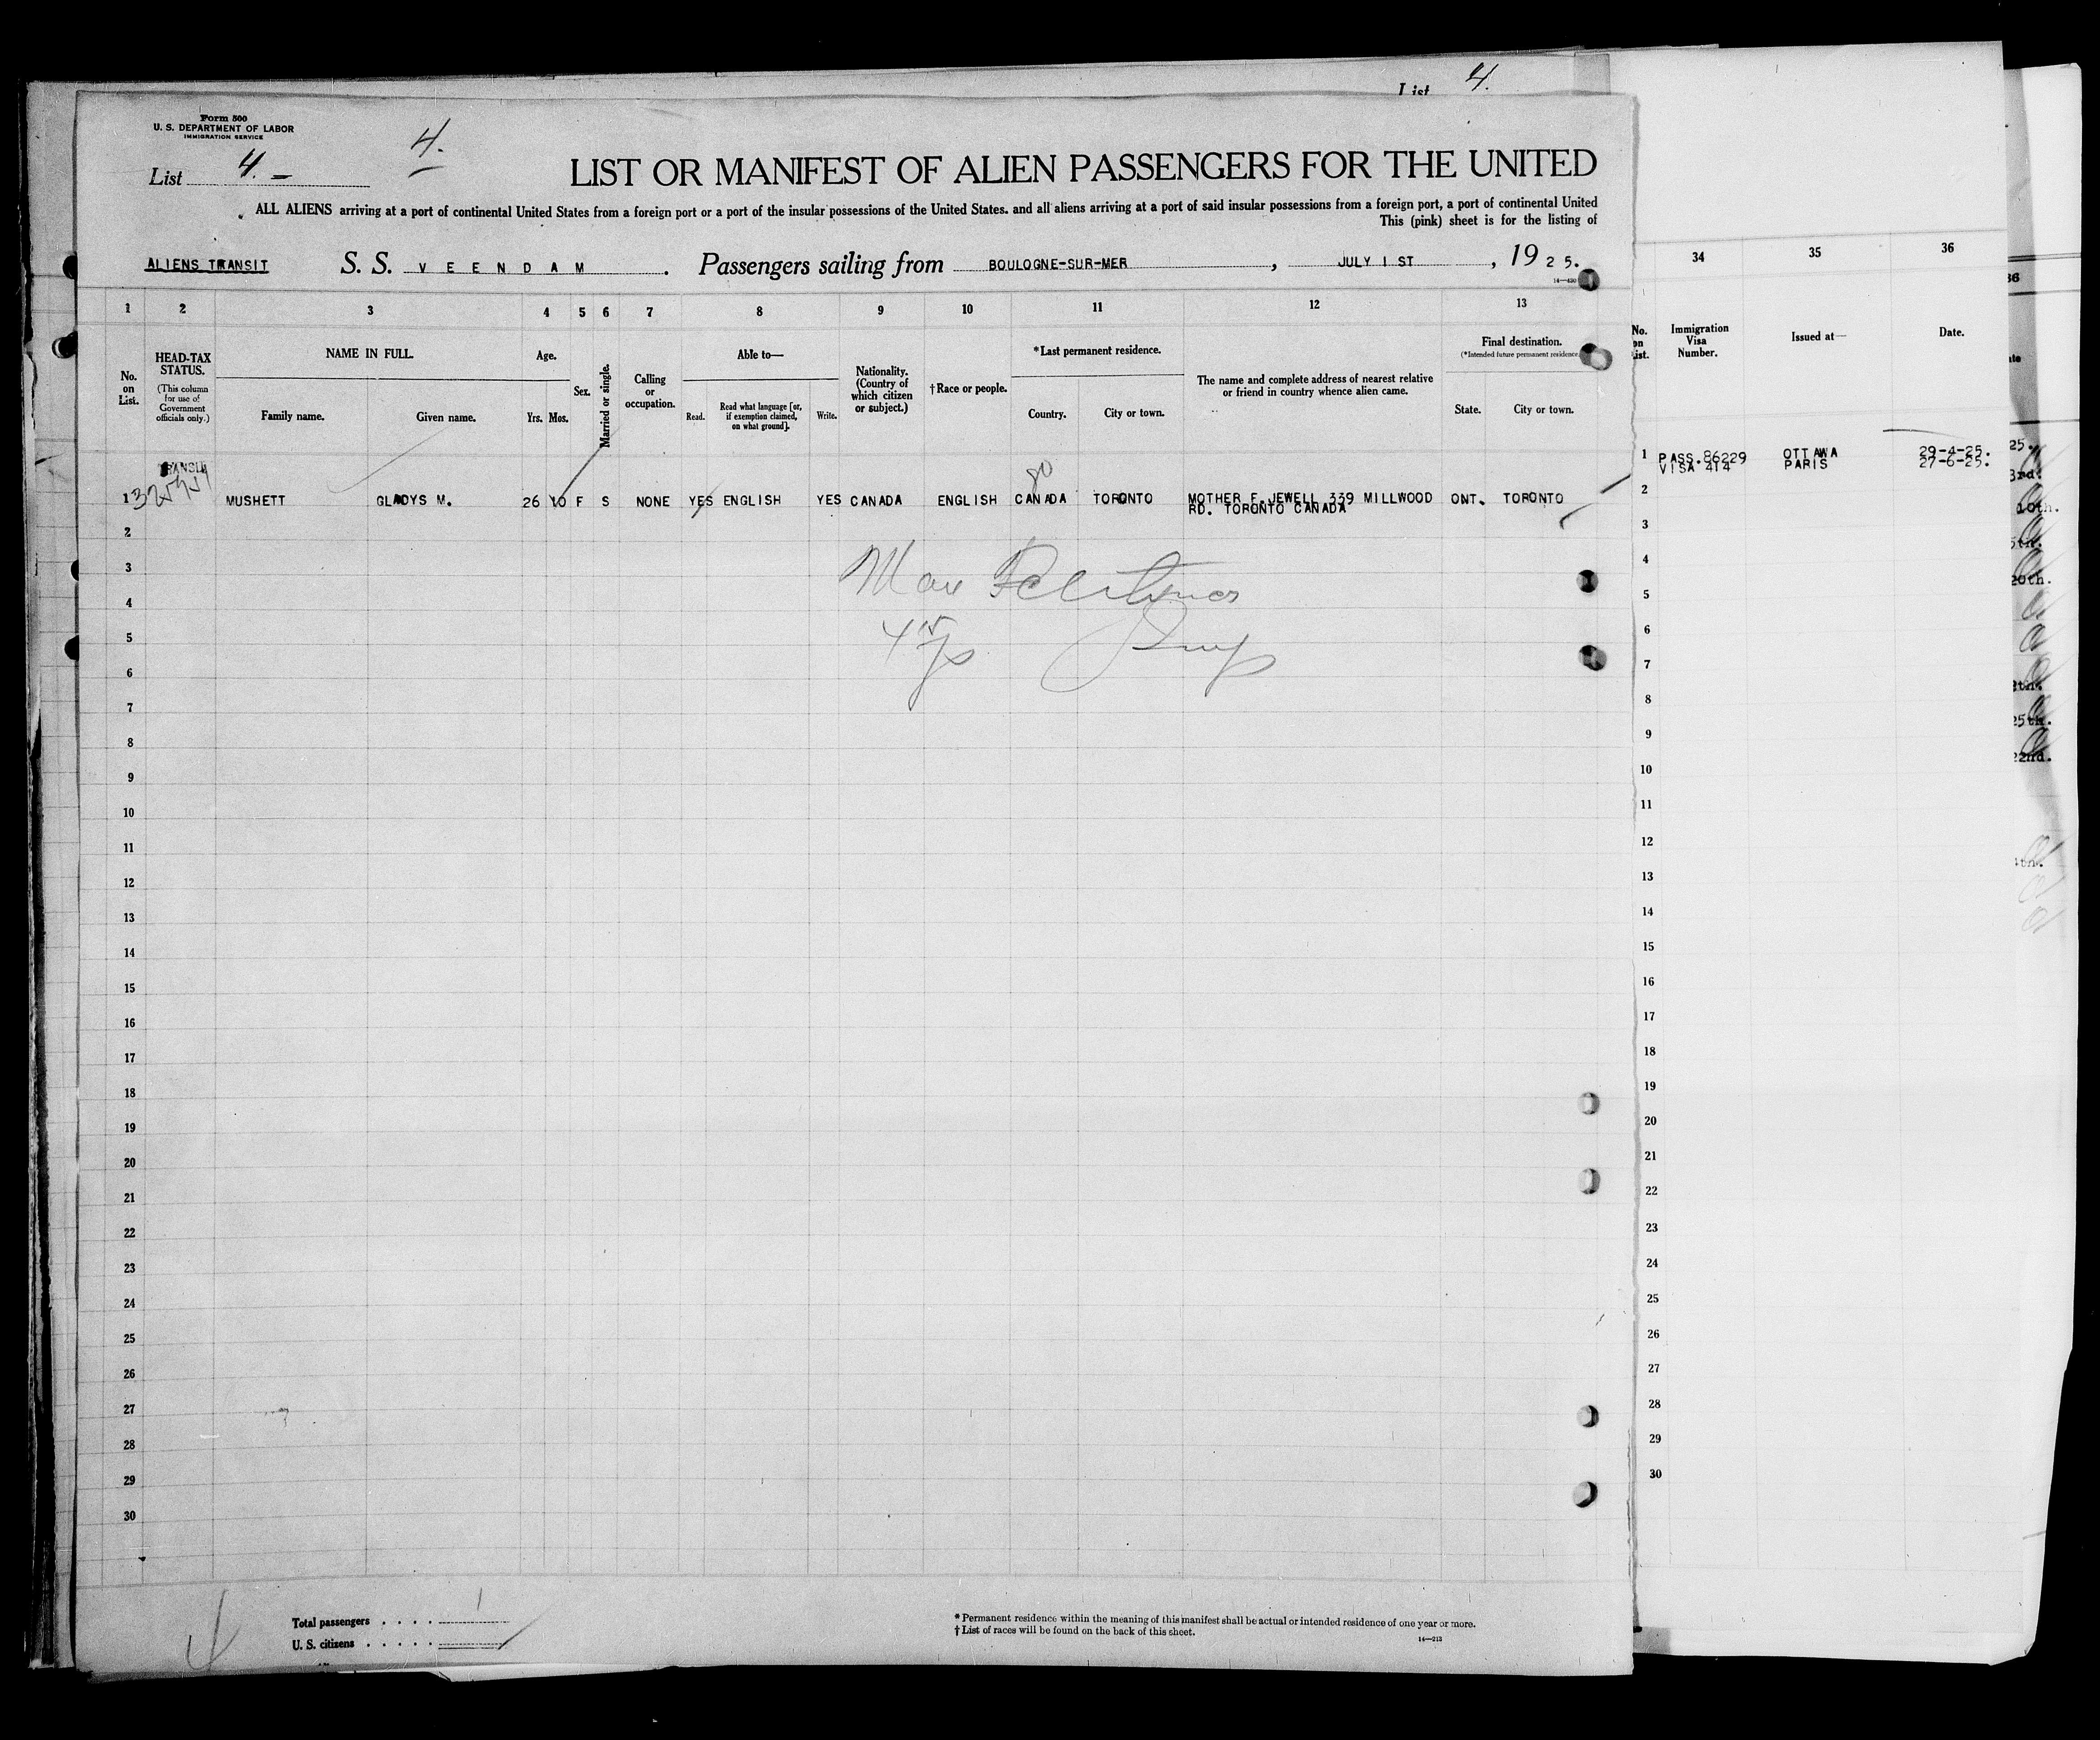 List 4.
Form 500
U. S. DEPARTMENT OF LABOR
IMMIGRATION SERVICE
List 4. –
4.
LIST OR MANIFEST OF ALIEN PASSENGERS FOR THE UNITED
ALL ALIENS arriving at a port of continental United States from a foreign port or a port of the insular possessions of the United States. and all aliens arriving at a port of said insular possessions from a foreign port, a port of continental United
This (pink) sheet is for the listing of
ALIENS TRANSIT S. S. VEENDAM . Passengers sailing from BOULOGNE-SUR-MER , JULY 1 ST , 1925.
1 2 3 4 5 6 7 8 9 10 11 12 13
No. on List.
HEAD-TAX STATUS.
(This column for use of Government officials only.)
NAME IN FULL.
Family name. Given name.
Age.
Yrs. Mos.
Sex.
Married or single.
Calling or occupation.
Able to—
Read. Read what language [or, if exemption claimed, on what ground]. Write.
Nationality. (Country of which citizen or subject.)
†Race or people.
*Last permanent residence.
Country. City or town.
The name and complete address of nearest relative or friend in country whence alien came.
Final destination.
(*Intended future permanent residence.
State. City or town.
TRANSIT
1 MUSHETT GLADYS M. 26 10 F S NONE YES ENGLISH YES CANADA ENGLISH CANADA TORONTO MOTHER F. JEWELL 339 MILLWOOD ONT. TORONTO
RD. TORONTO CANADA
2
3
4
5
6
7
8
9
10
11
12
13
14
15
16
17
18
19
20
21
22
23
24
25
26
27
28
29
30
Total passengers . . . . 1
U. S. citizens . . . . .
* Permanent residence within the meaning of this manifest shall be actual or intended residence of one year or more.
† List of races will be found on the back of this sheet.
14—213
34 35 36
No. on List.
Immigration Visa Number.
Issued at—
Date.
1 PASS. 86229 OTTAWA 29-4-25.
VISA 414 PARIS 27-6-25.
2
3
4
5
6
7
8
9
10
11
12
13
14
15
16
17
18
19
20
21
22
23
24
25
26
27
28
29
30
36
25.
3rd.
10th.
5th.
20th.
25th.
22nd.